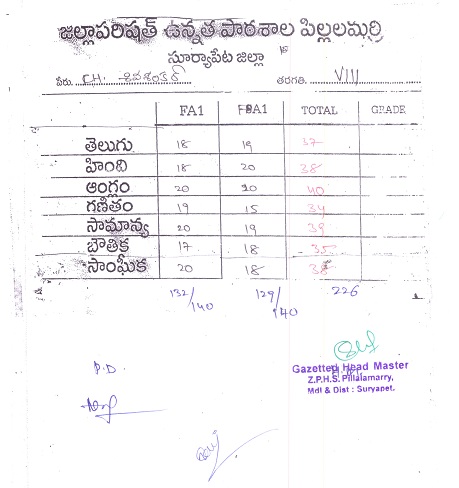 జిల్లాపరిషత్ ఉన్నత పాఠశాల పిల్లలమర్రి
సూర్యాపేట జిల్లా
పేరు. CH. శివశంకర్ తరగతి. VIII
FA1 FBA1 TOTAL GRADE
తెలుగు 18 19 37
హింది 18 20 38
ఆంగ్లం 20 20 40
గణితం 19 15 34
సామాన్య 20 19 39
బౌతిక 17 18 35
సాంఘీక 20 18 38
132/140 129/140 226
P.D.
Gazetted Head Master
Z.P.H.S. Pillalamarry,
Mdl & Dist : Suryapet.